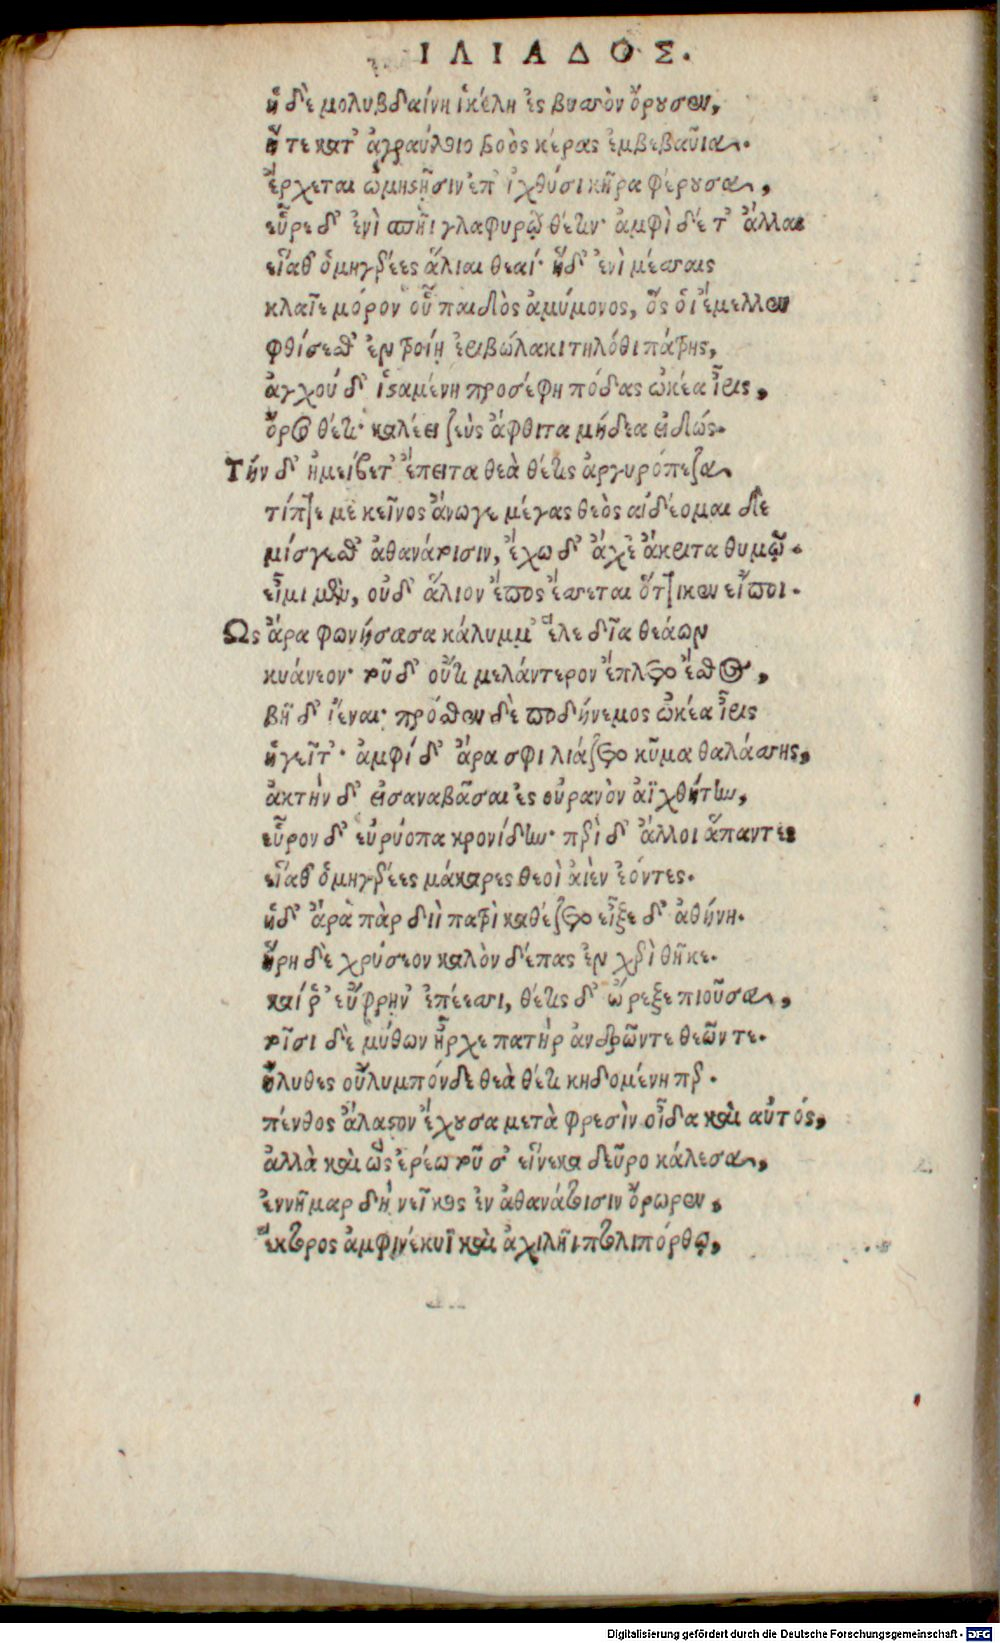 ΙΛΙΑΔΟΣ.
ἡ δὲ μολυβδαίνη ἰκέλη ἐς βυσσὸν ὄρουσεν,
ἥ τε κατ' ἀγραύλοιο βοὸς κέρας ἐμβεβαῦια.
ἔρχεται ὠμηστῆσιν ἐπ' ἰχθύσι κῆρα φέρουσα,
εὗρε δ' ἐνὶ σπῆι γλαφυρῷ θέτιν· ἀμφὶ δέ τ' ἄλλαι
εἵαθ' ὁμηγερέες ἅλιαι θεαί· ἥδ' ἐνὶ μέσσαις
κλαῖε μόρον οὗ παιδὸς ἀμύμονος, ὅς οἱ ἔμελλεν
φθίσεσθ' ἐν τροίῃ ἐριβώλακι τηλόθι πάτρης,
ἀγχοῦ δ' ἱσταμένη προσέφη πόδας ὠκέα ἶρις,
ὄρσο θέτι· καλέει ζεὺς ἄφθιτα μήδεα εἰδώς.
Τὴν δ' ἠμείβετ' ἔπειτα θεὰ θέτις ἀργυρόπεζα
τίπτε με κεῖνος ἄνωγε μέγας θεὸς αἰδέομαι δὲ
μίσγεσθ' ἀθανάτοισιν, ἔχω δ' ἄχε' ἄκριτα θυμῷ.
εἶμι μὲν, οὐδ' ἅλιον ἔπος ἔσσεται ὅττι κεν εἴποι.
Ὣς ἄρα φωνήσασα κάλυμμ' ἕλε δῖα θεάων
κυάνεον· τοῦ δ' οὔτι μελάντερον ἔπλετο ἔσθος,
βῆ δ' ἰέναι· πρόσθεν δὲ ποδήνεμος ὠκέα ἶρις
ἡγεῖτ'· ἀμφί δ' ἄρα σφι λιάζετο κῦμα θαλάσσης,
ἀκτὴν δ' εἰσαναβᾶσαι ἐς οὐρανὸν ἀϊχθήτην,
εὗρον δ' εὐρύοπα κρονίδην· περὶ δ' ἄλλοι ἅπαντες
εἵαθ' ὁμηγερέες μάκαρες θεοὶ αἰὲν ἐόντες.
ἡ δ' ἄρα πὰρ διὶ πατρὶ καθέζετο εἶξε δ' ἀθήνη.
ἥρη δὲ χρύσεον καλὸν δέπας ἐν χερὶ θῆκε.
καί ῥ' εὔφρην' ἐπέεσσι, θέτις δ' ὤρεξε πιοῦσα,
τοῖσι δὲ μύθων ἦρχε πατὴρ ἀνδρῶντε θεῶντε.
ἤλυθες οὔλυμπόνδε θεὰ θέτι κηδομένη περ.
πένθος ἄλαστον ἔχουσα μετὰ φρεσὶν οἶδα καὶ αὐτός,
ἀλλὰ καὶ ὧς ἐρέω τοῦ σ' εἵνεκα δεῦρο κάλεσα,
ἐννῆμαρ δὴ νεῖκος ἐν ἀθανάτοισιν ὄρωρεν,
ἕκτορος ἀμφινέκυϊ καὶ ἀχιλῆι πτολιπόρθῳ,
Digitalisierung gefördert durch die Deutsche Forschungsgemeinschaft - DFG